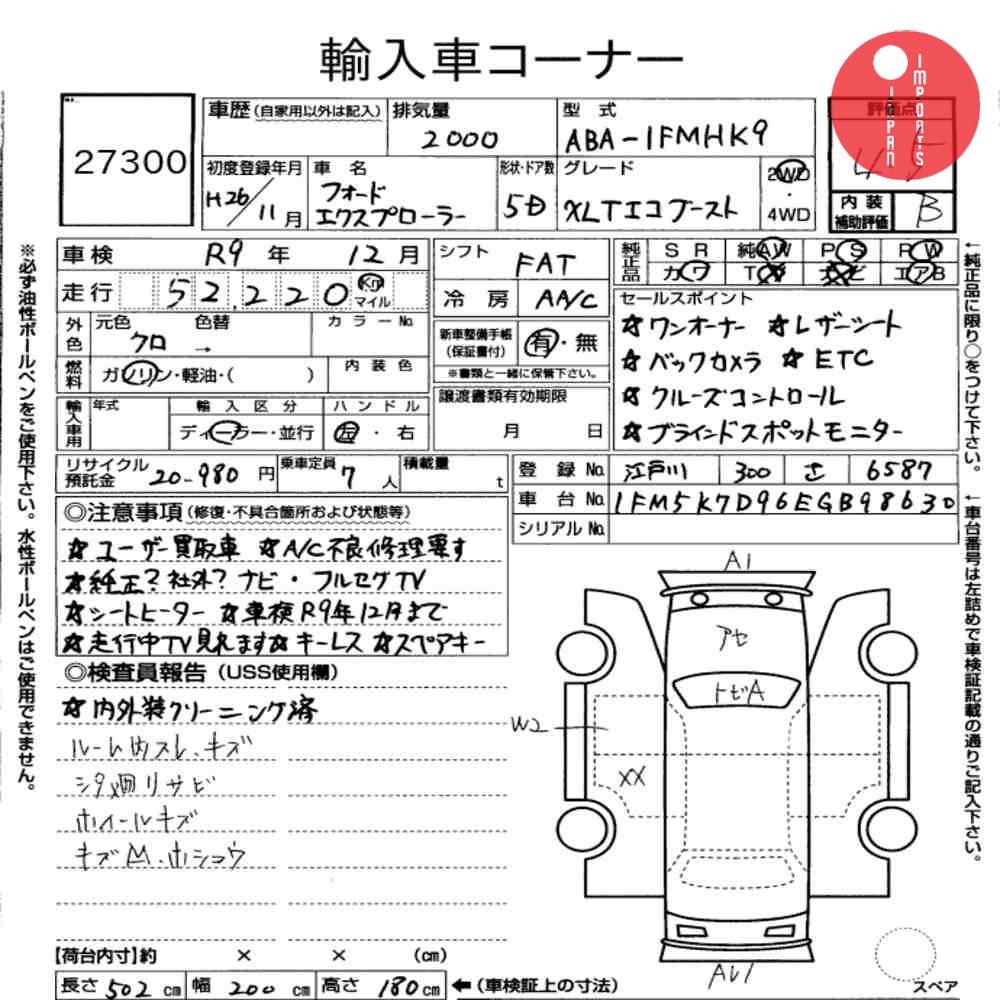 輸入車コーナー
JAPAN IMPORTS
27300
車歴(自家用以外は記入) 排気量 2000 型式 ABA-1FMHK9 評価点 4.5
初度登録年月 H26/11月 車名 フォード エクスプローラー 形状・ドア数 5D グレード XLTエコブースト 2WD・4WD 内装補助評価 B
車検 R9年 12月 シフト FAT 純正品 SR 純AW PS PW
走行 52,220 Km マイル 冷房 AA/C カワ TV ナビ エアB
外色 元色 クロ 色替 → カラーNo. 新車整備手帳(保証書付) 有・無
※書類と一緒に保管下さい。
燃料 ガソリン・軽油・( ) 内装色 譲渡書類有効期限 月 日
輸入車用 年式 輸入区分 ディーラー・並行 ハンドル 左・右
セールスポイント
☆ワンオーナー ☆レザーシート
☆バックカメラ ☆ETC
☆クルーズコントロール
☆ブラインドスポットモニター
リサイクル預託金 20-980円 乗車定員 7人 積載量 t
登録No. 江戸川 300 さ 6587
車台No. 1FM5K7D96EGB98630
シリアルNo.
◎注意事項(修復・不具合箇所および状態等)
☆ユーザー買取車 ☆A/C不良修理要す
☆純正?社外?ナビ・フルセグTV
☆シートヒーター ☆車検R9年12月まで
☆走行中TV見れます☆キーレス ☆スペアキー
◎検査員報告(USS使用欄)
☆内外装クリーニング済
ルーム内スレ、キズ
シタ廻リサビ
ホイールキズ
キズM.ホショウ
A1
アセ
トビA
W2
XX
AU1
スペア
【荷台内寸】約 × × (cm)
長さ 502 cm 幅 200 cm 高さ 180cm ←(車検証上の寸法)
※必ず油性ボールペンをご使用下さい。水性ボールペンはご使用できません。
←純正品に限り○をつけて下さい。
←車台番号は左詰めで車検証記載の通りご記入下さい。